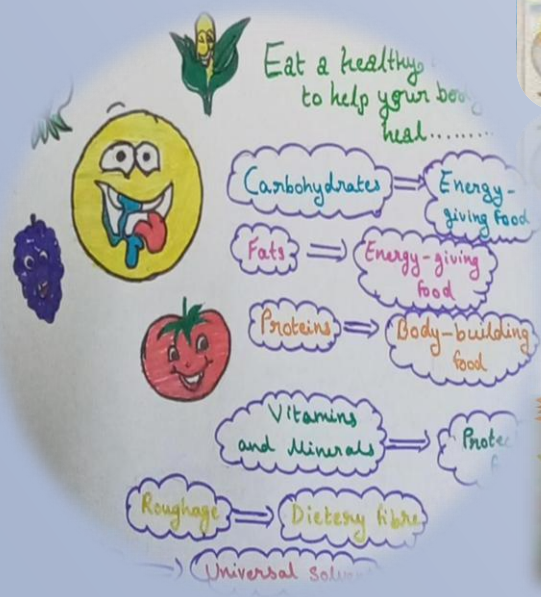 Eat a healthy
to help your
heal........
Carbohydrates ⇒ Energy-
giving food
Fats ⇒ Energy-giving
food
Proteins ⇒ Body-building
food
Vitamins
and Minerals ⇒
Roughage ⇒ Dietery fibre
Universal